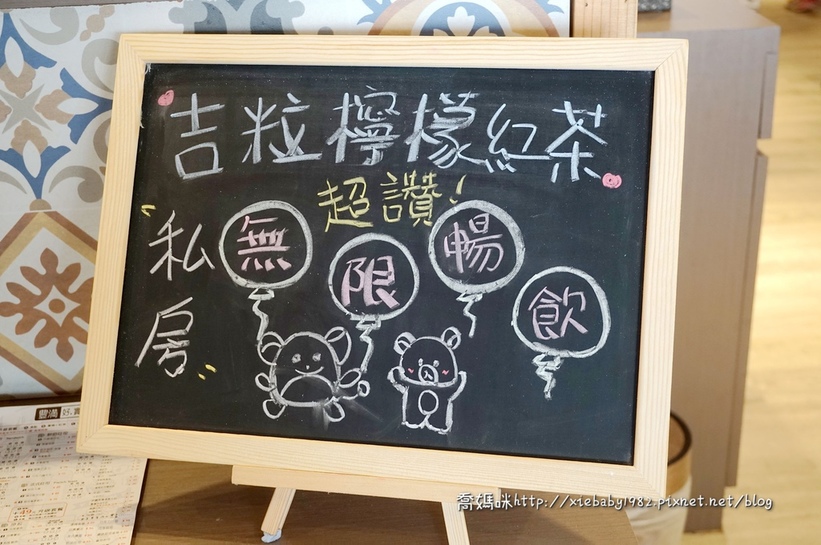 吉粒檸檬紅茶
超讚!
私房
無限暢飲
豐滿
喬媽咪http://xiebaby1982.pixnet.net/blog